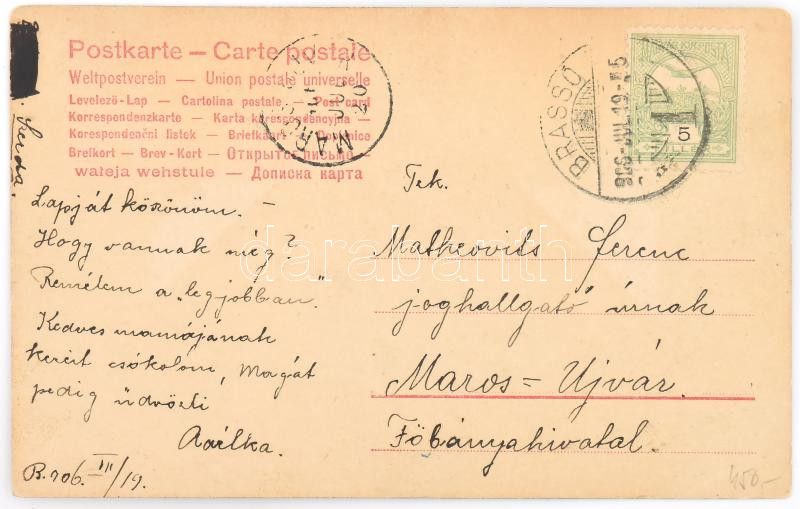 Postkarte — Carte postale
Weltpostverein — Union postale universelle
Levelező-Lap — Cartolina postale — Post card
Korrespondenzkarte — Karta korespondencyjna —
Korespondenční listek — Briefkaart — Dopisnice
Brefkort — Brev-Kort — Открытое письмо —
wateja wehstule — Дописна карта
Lapját köszönöm. —
Hogy vannak még?
Remélem a „legjobban".
Kedves mamájának
kezeit csókolom, Magát
pedig üdvözli
B. 906. III/19.
Tek.
Matheovits Ferenc
joghallgató úrnak
Maros=Ujvár.
Főbányahivatal.
BRASSÓ
5
450.-
darabanth